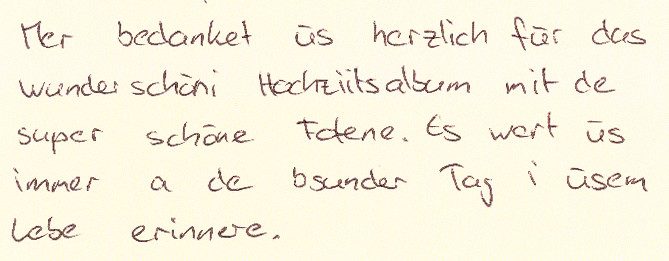 Mer bedanket üs herzlich für das
wunderschöni Hochziitsalbum mit de
super schöne Fotene. Es wert üs
immer a de bsunder Tag i üsem
Lebe erinnere.